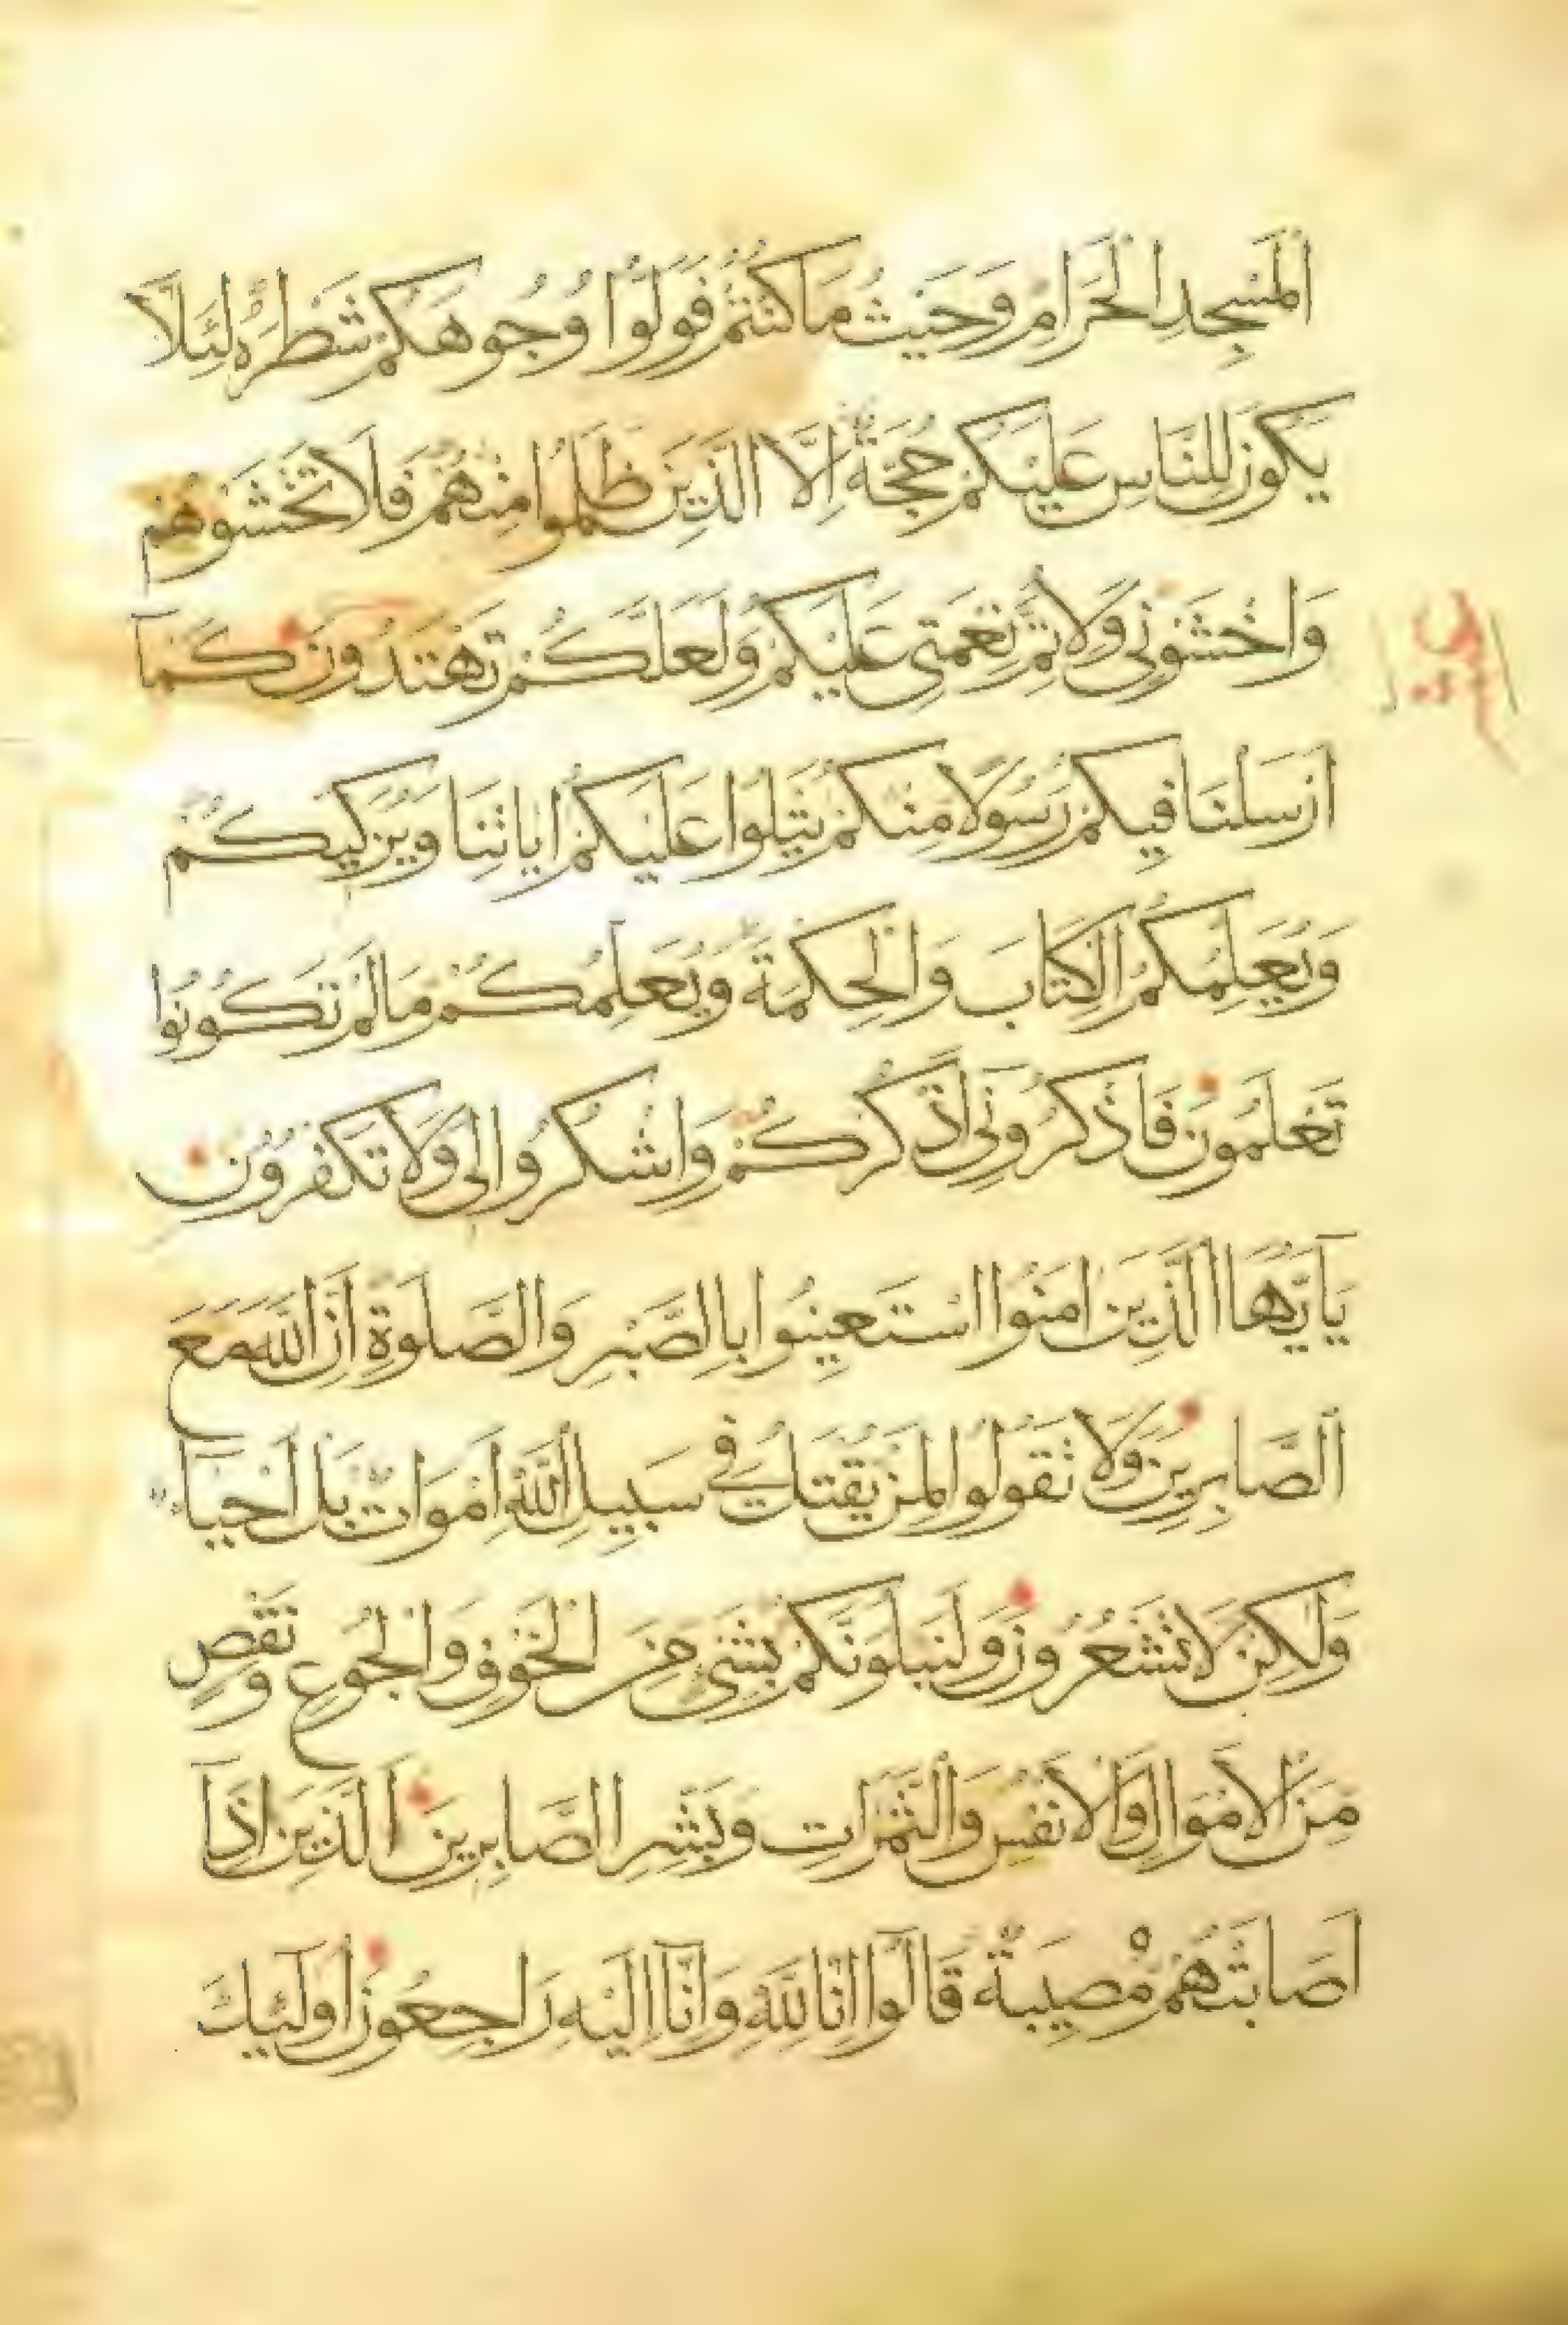 اَلْمَسْجِدِ الْحَرَامِ وَحَيْثُ مَا كُنْتُمْ فَوَلُّوا وُجُوهَكُمْ شَطْرَهُ لِئَلَّا
يَكُونَ لِلنَّاسِ عَلَيْكُمْ حُجَّةٌ اِلَّا الَّذِينَ ظَلَمُوا مِنْهُمْ فَلَا تَخْشَوْهُمْ
وَاخْشَوْنِى وَلِاُتِمَّ نِعْمَتِى عَلَيْكُمْ وَلَعَلَّكُمْ تَهْتَدُونَ كَمَا
اَرْسَلْنَا فِيكُمْ رَسُولًا مِنْكُمْ يَتْلُوا عَلَيْكُمْ اٰيَاتِنَا وَيُزَكِّيكُمْ
وَيُعَلِّمُكُمُ الْكِتَابَ وَالْحِكْمَةَ وَيُعَلِّمُكُمْ مَا لَمْ تَكُونُوا
تَعْلَمُونَ فَاذْكُرُونِى اَذْكُرْكُمْ وَاشْكُرُوا لِى وَلَا تَكْفُرُونِ
يَا اَيُّهَا الَّذِينَ اٰمَنُوا اسْتَعِينُوا بِالصَّبْرِ وَالصَّلٰوةِ اِنَّ اللّٰهَ مَعَ
الصَّابِرِينَ وَلَا تَقُولُوا لِمَنْ يُقْتَلُ فِى سَبِيلِ اللّٰهِ اَمْوَاتٌ بَلْ اَحْيَاءٌ
وَلٰكِنْ لَا تَشْعُرُونَ وَلَنَبْلُوَنَّكُمْ بِشَىْءٍ مِنَ الْخَوْفِ وَالْجُوعِ وَنَقْصٍ
مِنَ الْاَمْوَالِ وَالْاَنْفُسِ وَالثَّمَرَاتِ وَبَشِّرِ الصَّابِرِينَ اَلَّذِينَ اِذَا
اَصَابَتْهُمْ مُصِيبَةٌ قَالُوا اِنَّا لِلّٰهِ وَاِنَّا اِلَيْهِ رَاجِعُونَ اُولٰئِكَ